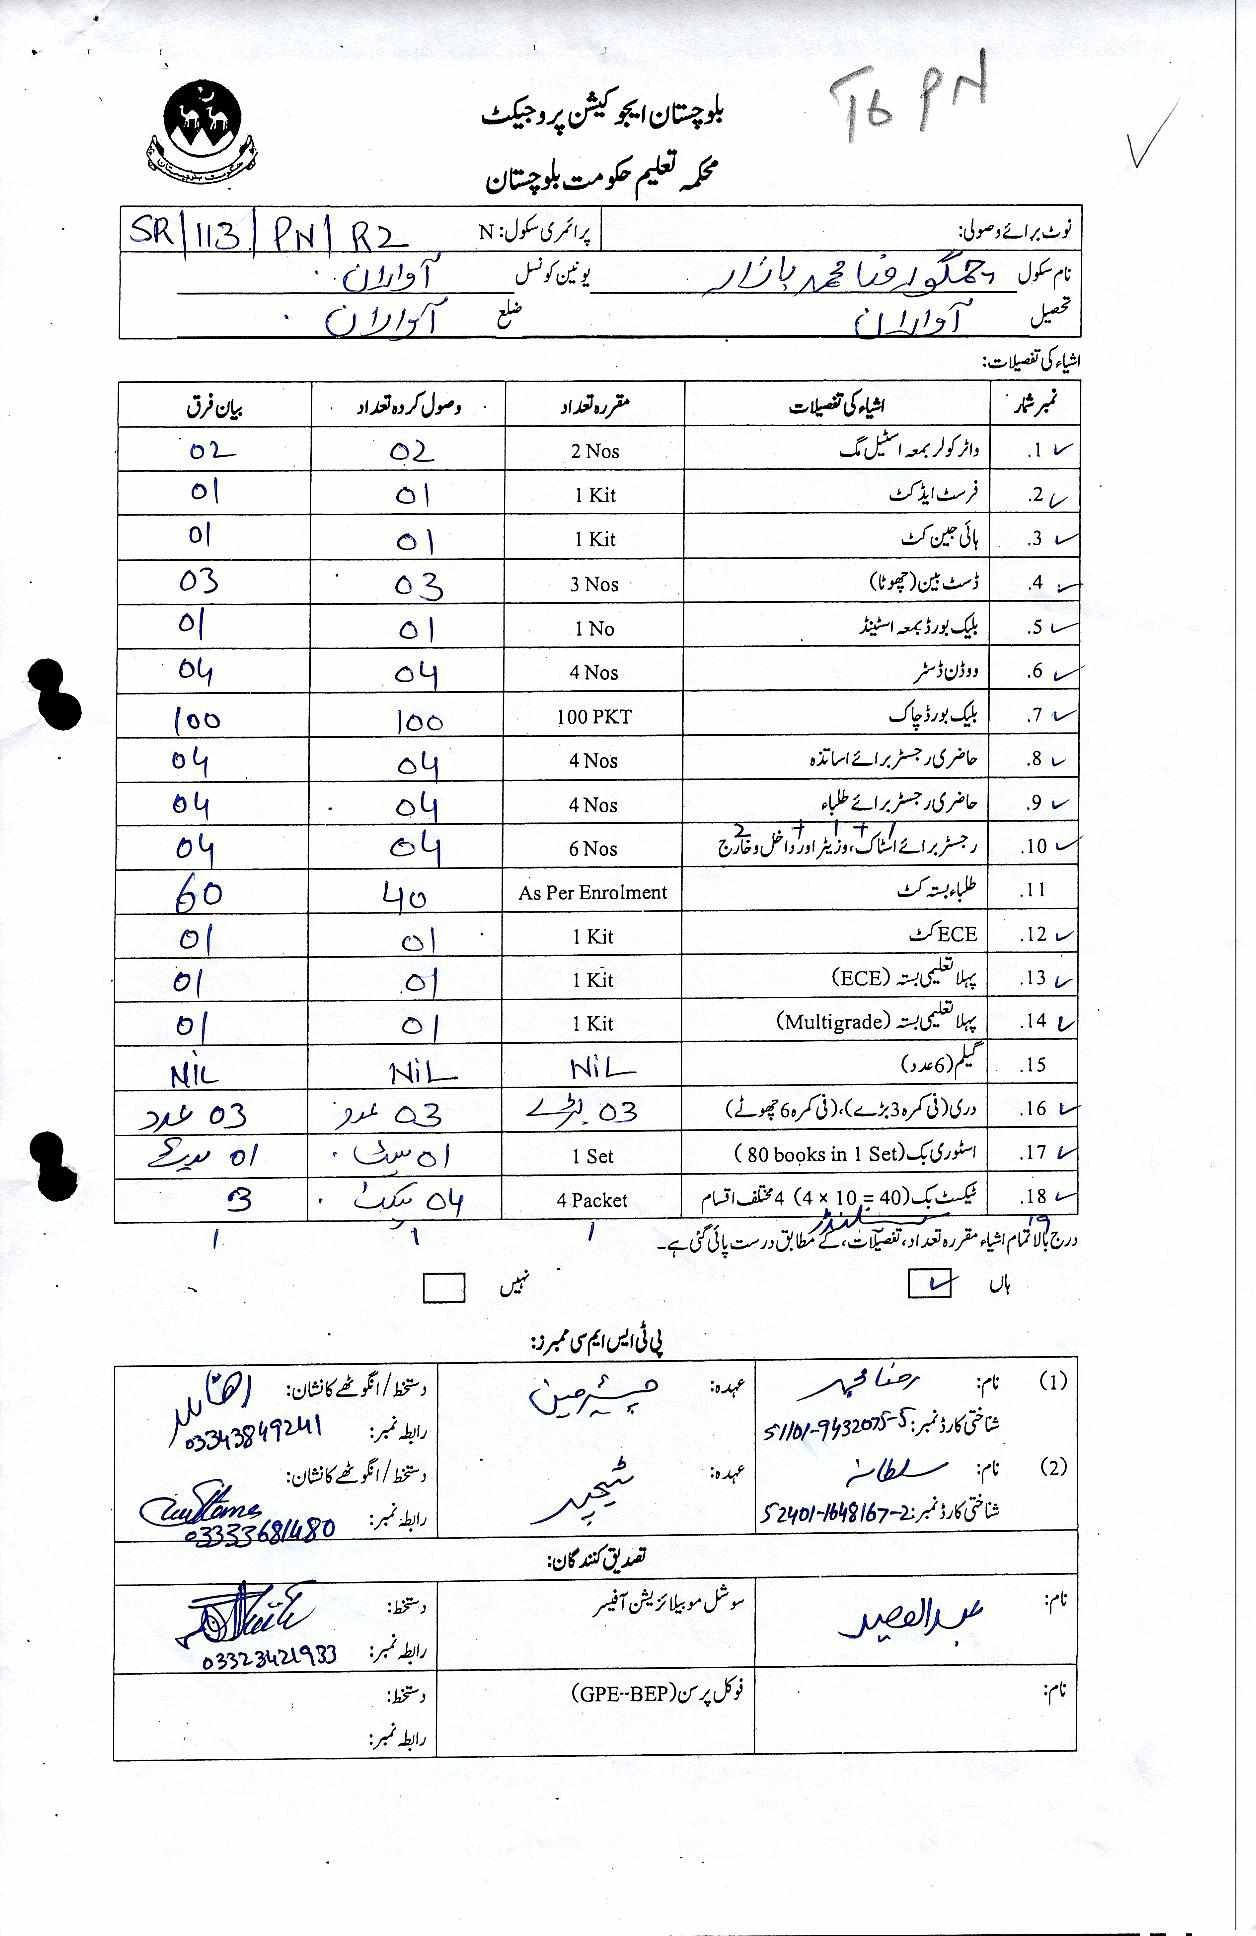 T6 PN
بلوچستان ایجوکیشن پروجیکٹ
محکمہ تعلیم حکومت بلوچستان
نوٹ برائے وصولی: پرائمری سکول: N SR/113/PN/R2
نام سکول رضا محمد بازار یونین کونسل آواران
تحصیل آواران ضلع آواران
اشیاء کی تفصیلات:
نمبر شمار اشیاء کی تفصیلات مقررہ تعداد وصول کردہ تعداد بیان فرق
1. واٹر کولر بمعہ اسٹیل مگ 2 Nos 02 02
2. فرسٹ ایڈ کٹ 1 Kit 01 01
3. ہائی جین کٹ 1 Kit 01 01
4. ڈسٹ بین (چھوٹا) 3 Nos 03 03
5. بلیک بورڈ بمعہ اسٹینڈ 1 No 01 01
6. ووڈن ڈسٹر 4 Nos 04 04
7. بلیک بورڈ چاک 100 PKT 100 100
8. حاضری رجسٹر برائے اساتذہ 4 Nos 04 04
9. حاضری رجسٹر برائے طلباء 4 Nos 04 04
2 + 1 + 1
10. رجسٹر برائے اسٹاک، وزیٹر اور داخل و خارج 6 Nos 04 04
11. طلباء بستہ کٹ As Per Enrolment 40 60
12. ECE کٹ 1 Kit 01 01
13. پہلا تعلیمی بستہ (ECE) 1 Kit 01 01
14. پہلا تعلیمی بستہ (Multigrade) 1 Kit 01 01
15. گلیم (6 عدد) NiL NiL NiL
16. دری (فی کمرہ 3 بڑے)، (فی کمرہ 6 چھوٹے) 03 بڑے 03 عدد 03 عدد
17. اسٹوری بک (80 books in 1 Set) 1 Set 01 سیٹ 01 سیٹ
18. ٹیکسٹ بک (4 x 10 = 40) 4 مختلف اقسام 4 Packet 04 پیکٹ 3
19 1 1 1
درج بالا تمام اشیاء مقررہ تعداد، تفصیلات، کے مطابق درست پائی گئی ہے۔
ہاں نہیں
پی ٹی ایس ایم سی ممبرز:
(1) نام: رضا محمد عہدہ: چیئرمین دستخط/انگوٹھے کا نشان:
شناختی کارڈ نمبر: 51101-9432075-5 رابطہ نمبر: 03343849241
(2) نام: سلطانہ عہدہ: ٹیچر دستخط/انگوٹھے کا نشان:
شناختی کارڈ نمبر: 52401-1648167-2 رابطہ نمبر: 03333681480
تصدیق کنندگان:
نام: عبدالصمد سوشل موبیلائزیشن آفیسر دستخط:
رابطہ نمبر: 03323421933
نام: فوکل پرسن (GPE--BEP) دستخط:
رابطہ نمبر: